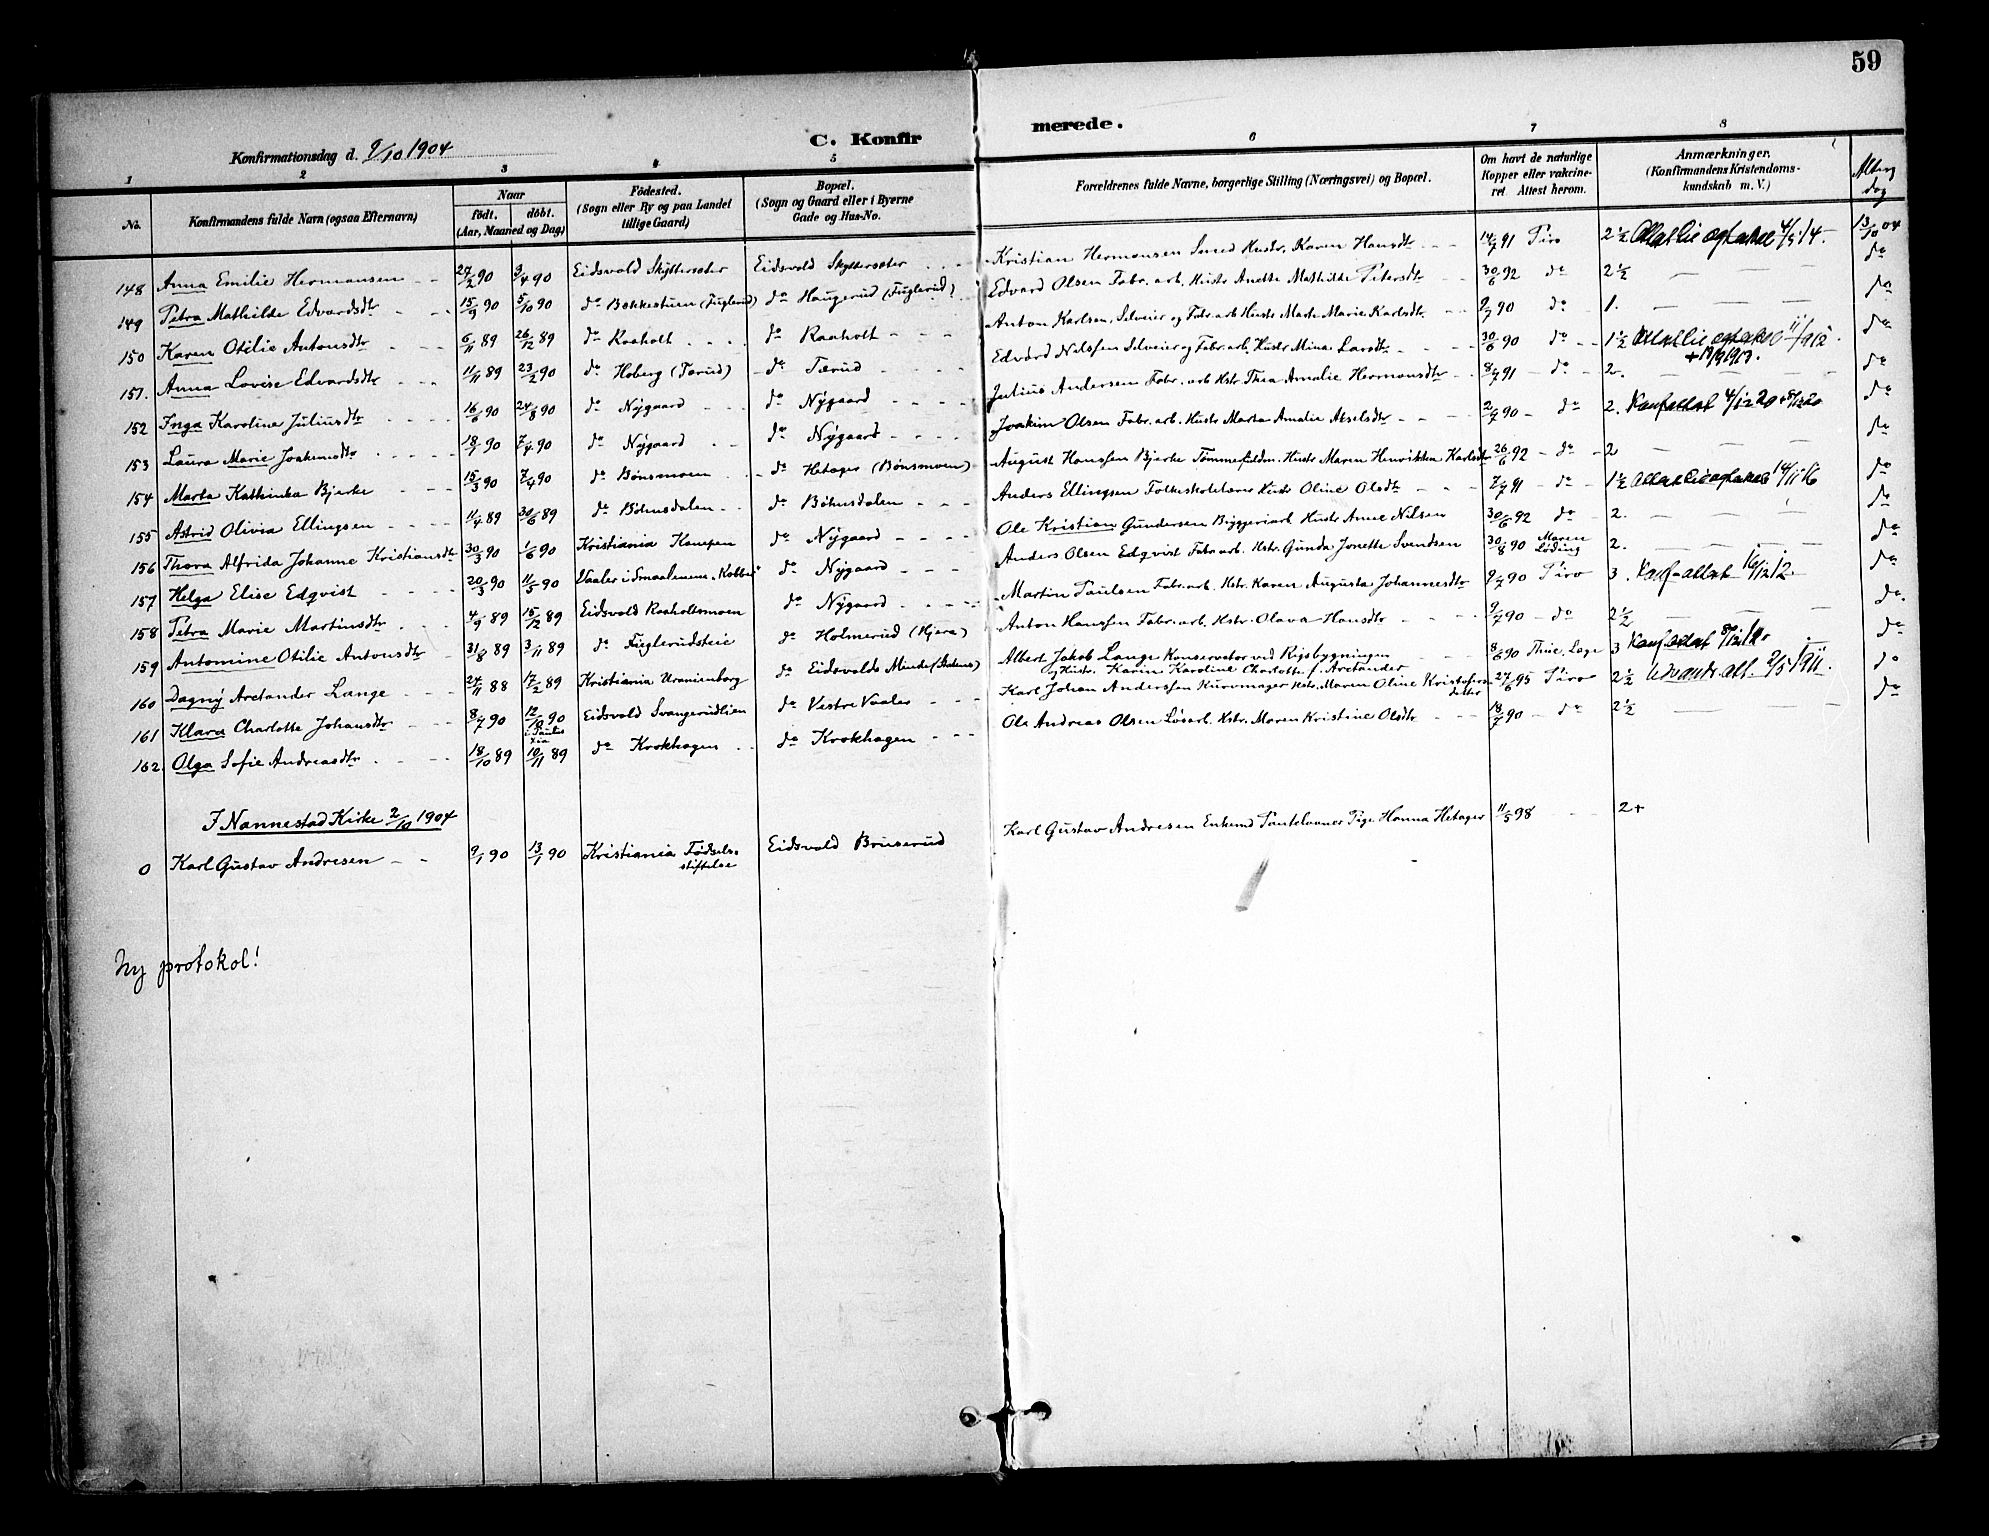 59
Konfirmationsdag d. 9/10 1904
C. Konfirmerede.
1 2 3 4 5 6 7 8
No.
Konfirmandens fulde Navn (ogsaa Efternavn)
Naar
født. døbt.
(Aar, Maaned og Dag)
Fødested.
(Sogn eller By og paa Landet
tillige Gaard)
Bopæl.
(Sogn og Gaard eller i Byerne
Gade og Hus-No.
Forældrenes fulde Navne, borgerlige Stilling (Næringsvei) og Bopæl.
Om havt de naturlige
Kopper eller vakcine-
ret. Attest herom.
Anmærkninger.
(Konfirmandens Kristendoms-
kundskab m. V.)
dag
148 Anna Emilie Hermansen 27/2 90 3/4 90 Eidsvold Skyttersæter Eidsvold Skyttersæter Kristian Hermansen Smed Hustr. Karen Hansdtr 14/7 91 Piro 2 1/2 4/5 14. 13/10 04
149 Petra Mathilde Edvardsdtr 15/9 90 5/10 90 do Bakkestuen (Fuglerud) do Haugerud (Fuglerud) Edvard Olsen Fabr. arb. Hustr Anette Mathilde Petersdtr 30/6 92 do 2 1/2 — do
150 Karen Otilie Antonsdtr 6/11 89 26/12 89 do Raaholt do Raaholt Anton Karlsen, Selveier og Fabr. arb Hustr Marte Marie Karlsdtr 2/7 90 do 1. — do
151. Anna Lovise Edvardsdtr 11/11 89 23/2 90 do Hoberg (Tærud) do Tærud Edvard Nilssen Selveier og Fabr. arb. Hustr Mina Larsdtr 30/6 90 do 1 1/2 11/9 12. do
+ 19/9 1913.
152 Inga Karoline Juliusdtr 16/6 90 24/8 90 do Nygaard do Nygaard Julius Andersen Fabr. arb Hstr. Thea Amalie Hermansdtr 8/7 91 do 2. — do
153 Laura Marie Joakimsdtr 18/7 90 7/4 90 do Nygaard do Nygaard Joakim Olsen Fabr. arb. Hustr Marta Amalie Akselsdtr 2/7 90 do 2. Konf.attest 4/12 20 + 8/12 20 do
154 Marta Kathinka Bjerke 15/3 90 7/4 90 do Bønsmoen do Hetager (Bønsmoen) August Hanssen Bjerke Tømmerfuldm. Hustr. Maren Henrikka Karlsdtr 26/6 92 do 2 — do
155 Astrid Olivia Ellingsen 11/4 89 30/6 89 do Bøhnsdalen do Bøhnsdalen Anders Ellingsen Folkeskolelærer Hustr Oline Olsdtr 2/7 91 do 1 1/2 14/11 16 do
156 Thora Alfrida Johanne Kristiansdtr 30/3 90 1/6 90 Kristiania Kampen do Nygaard Ole Kristian Gundersen Byggeriarb Hustr Anne Nilsen 30/6 92 do 2. — do
157 Helga Elise Edqvist 20/3 90 11/5 90 Vaaler i Smaalenene „Kobber" do Nygaard Anders Olsen Edqvist Fabr. arb. Hstr. Gunda Jonette Svendsen 30/8 90 Maren Løding 2. — do
158 Petra Marie Martinsdtr 4/9 89 15/12 89 Eidsvold Raaholtsmoen do Nygaard Martin Paulsen Fabr. arb. Hstr. Karen Augusta Johannesdtr 9/7 90 Piro 3. Konf.attest 16/12 12 do
159 Antomine Otilie Antonsdtr 31/8 89 3/11 89 do Fuglerudsteie do Holmerud (Hjera) Anton Hanssen Fabr. arb. Hstr. Olava Hansdtr 9/7 90 do 2 1/2 — do.
160 Dagny Arctander Lange 24/11 88 17/2 89 Kristiania Uranienborg do Eidsvolds Minde Albert Jakob Lange Konservator ved Rigsbygningen 8/6 90 Thue, Læge 3 Konf.attest do
og Hustr. Karin Karoline Charlotte f. Arctander
161 Klara Charlotte Johansdtr 8/7 90 12/10 90 Eidsvold Svangerudlien do Vestre Vaaler Karl Johan Anderssen Kurvmager Hstr. Maren Oline Kristofersdatter 27/6 95 Piro 2 1/2 Udvandr.att. 2/5 1911. do
162. Olga Sofie Andreasdtr 18/10 89 10/11 89 do Krokhagen do Krokhagen Ole Andreas Olsen Løsarb. Hstr. Maren Kristine Olsdtr 18/7 90 do 2 1/2 — do
I Nannestad Kirke 2/10 1904
0 Karl Gustav Andresen 9/1 90 13/1 90 Kristiania Fødselsstiftelse Eidsvold Bruserud Karl Gustav Andresen Enkemd Pantelaaner Pige Hanna Hetager 11/5 98 2+
Ny protokol!